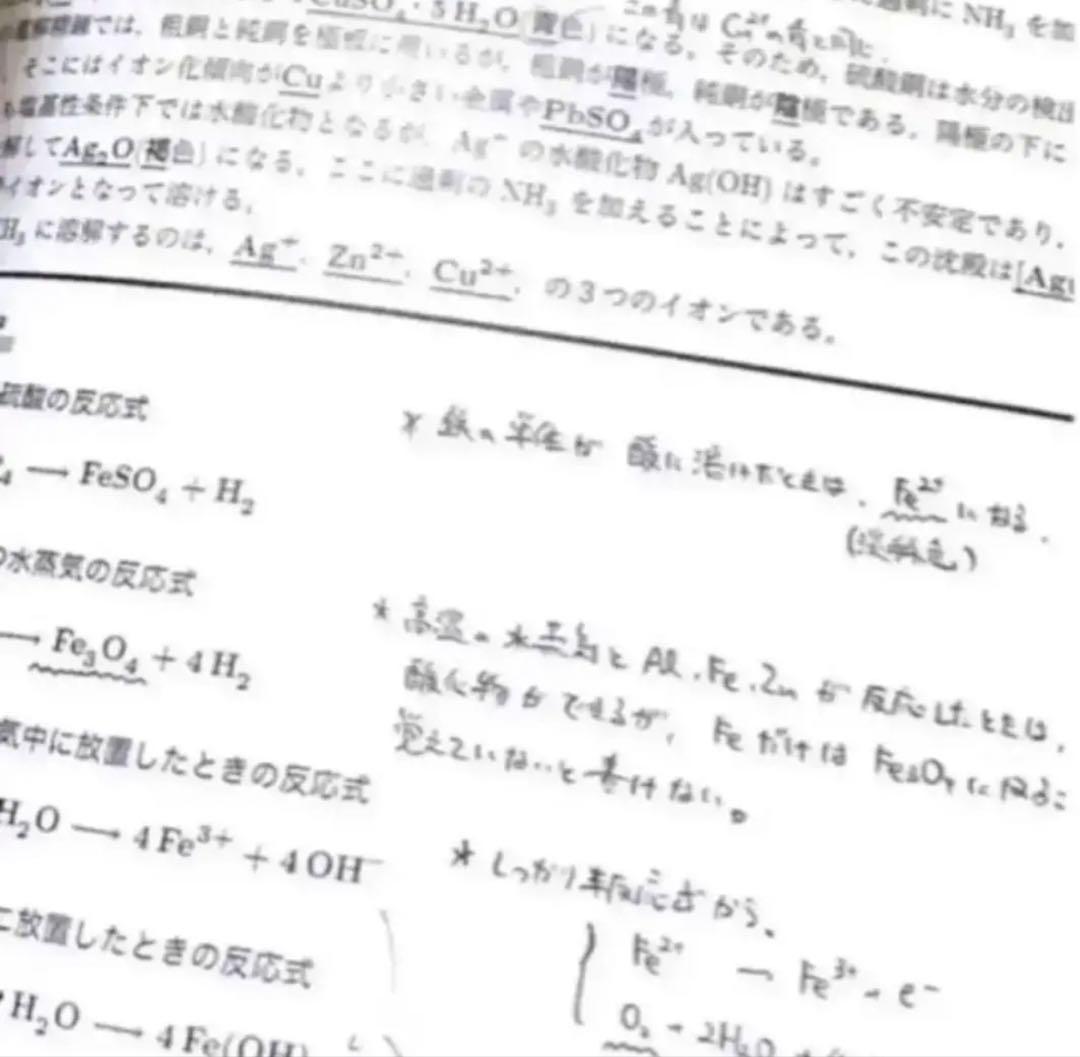 CuSO₄・5H₂O(青色)になる。そのため、硫酸銅は水分の検出
では、粗銅と純銅を極板に用いるが、粗銅が陽極、純銅が陰極である。陽極の下に
そこにはイオン化傾向がCuより小さい金属やPbSO₄が入っている。
塩基性条件下では水酸化物となるが、Ag⁺の水酸化物Ag(OH)はすごく不安定であり、
解してAg₂O(褐色)になる。ここに過剰のNH₃を加えることによって、この沈殿は[Ag(
イオンとなって溶ける。
H₃に溶解するのは、Ag⁺、Zn²⁺、Cu²⁺、の3つのイオンである。
硫酸の反応式
₄ ⟶ FeSO₄ + H₂
*鉄の単体が酸に溶けたときは、Fe²⁺になる。
(淡緑色)
の水蒸気の反応式
⟶ Fe₃O₄ + 4H₂
*高温の水蒸気とAl、Fe、Znが反応したときは、
酸化物ができるが、FeだけはFe₃O₄になるこ
覚えていないと書けない。
気中に放置したときの反応式
H₂O ⟶ 4Fe³⁺ + 4OH⁻
*しっかり半反応式から、
Fe²⁺ → Fe³⁺ + e⁻
O₂ + 2H₂O
に放置したときの反応式
H₂O ⟶ 4Fe(OH)